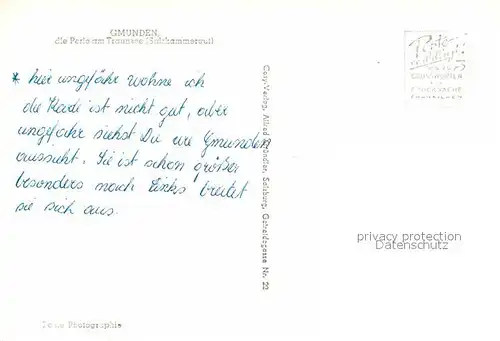 GMUNDEN,
die Perle am Traunsee (Salzkammergut)
* hier ungefähr wohne ich
die Karte ist nicht gut, aber
ungefähr siehst Du wie Gmunden
aussieht. Sie ist schon größer
besonders nach links breitet
sie sich aus.
Cosy-Verlag, Alfred Gründler, Salzburg, Getreidegasse Nr. 22
Peter
privacy protection
Datenschutz
Photographie